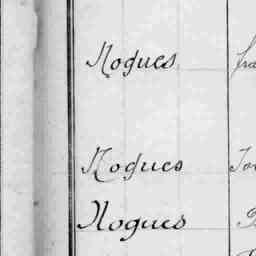 Nogues
Nogues
Nogues